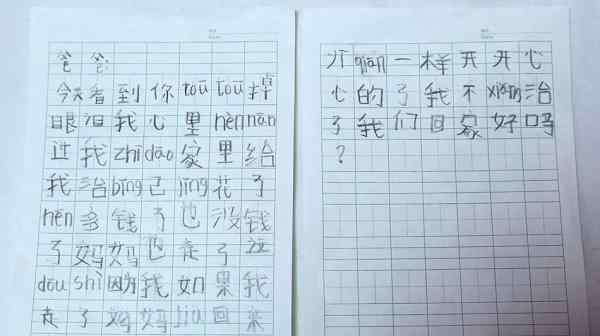 爸爸:
今天看到你toū toū掉
眼泪我心里hěn nán
过我zhī dāo家里给
我治bìng己jīng花了
hěn多钱了也没钱
了妈妈也走了这
dōu shì因为我如果我
走了妈妈jiù回来
qián一样开开心
心的了我不xiǎng治
了我们回家好吗
?